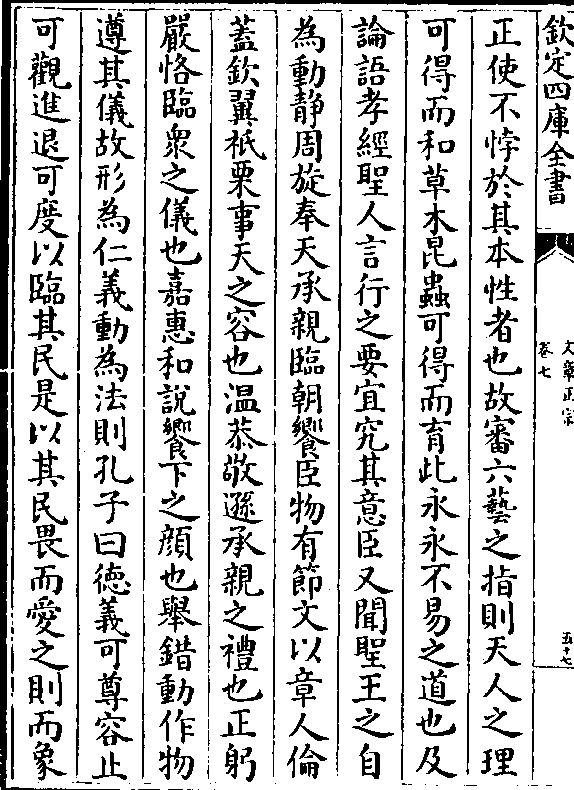 欽定四庫全書
文章正宗
卷七
五十七
正使不悖於其本性者也故審六藝之指則天人之理
可得而和草木昆蟲可得而育此永永不易之道也及
論語孝經聖人言行之要宜究其意臣又聞聖王之自
為動靜周旋奉天承親臨朝饗臣物有節文以章人倫
蓋欽翼祗栗事天之容也温恭敬遜承親之禮也正躬
嚴恪臨衆之儀也嘉惠和說饗下之顔也舉錯動作物
遵其儀故形為仁義動為法則孔子曰徳義可尊容止
可觀進退可度以臨其民是以其民畏而愛之則而象